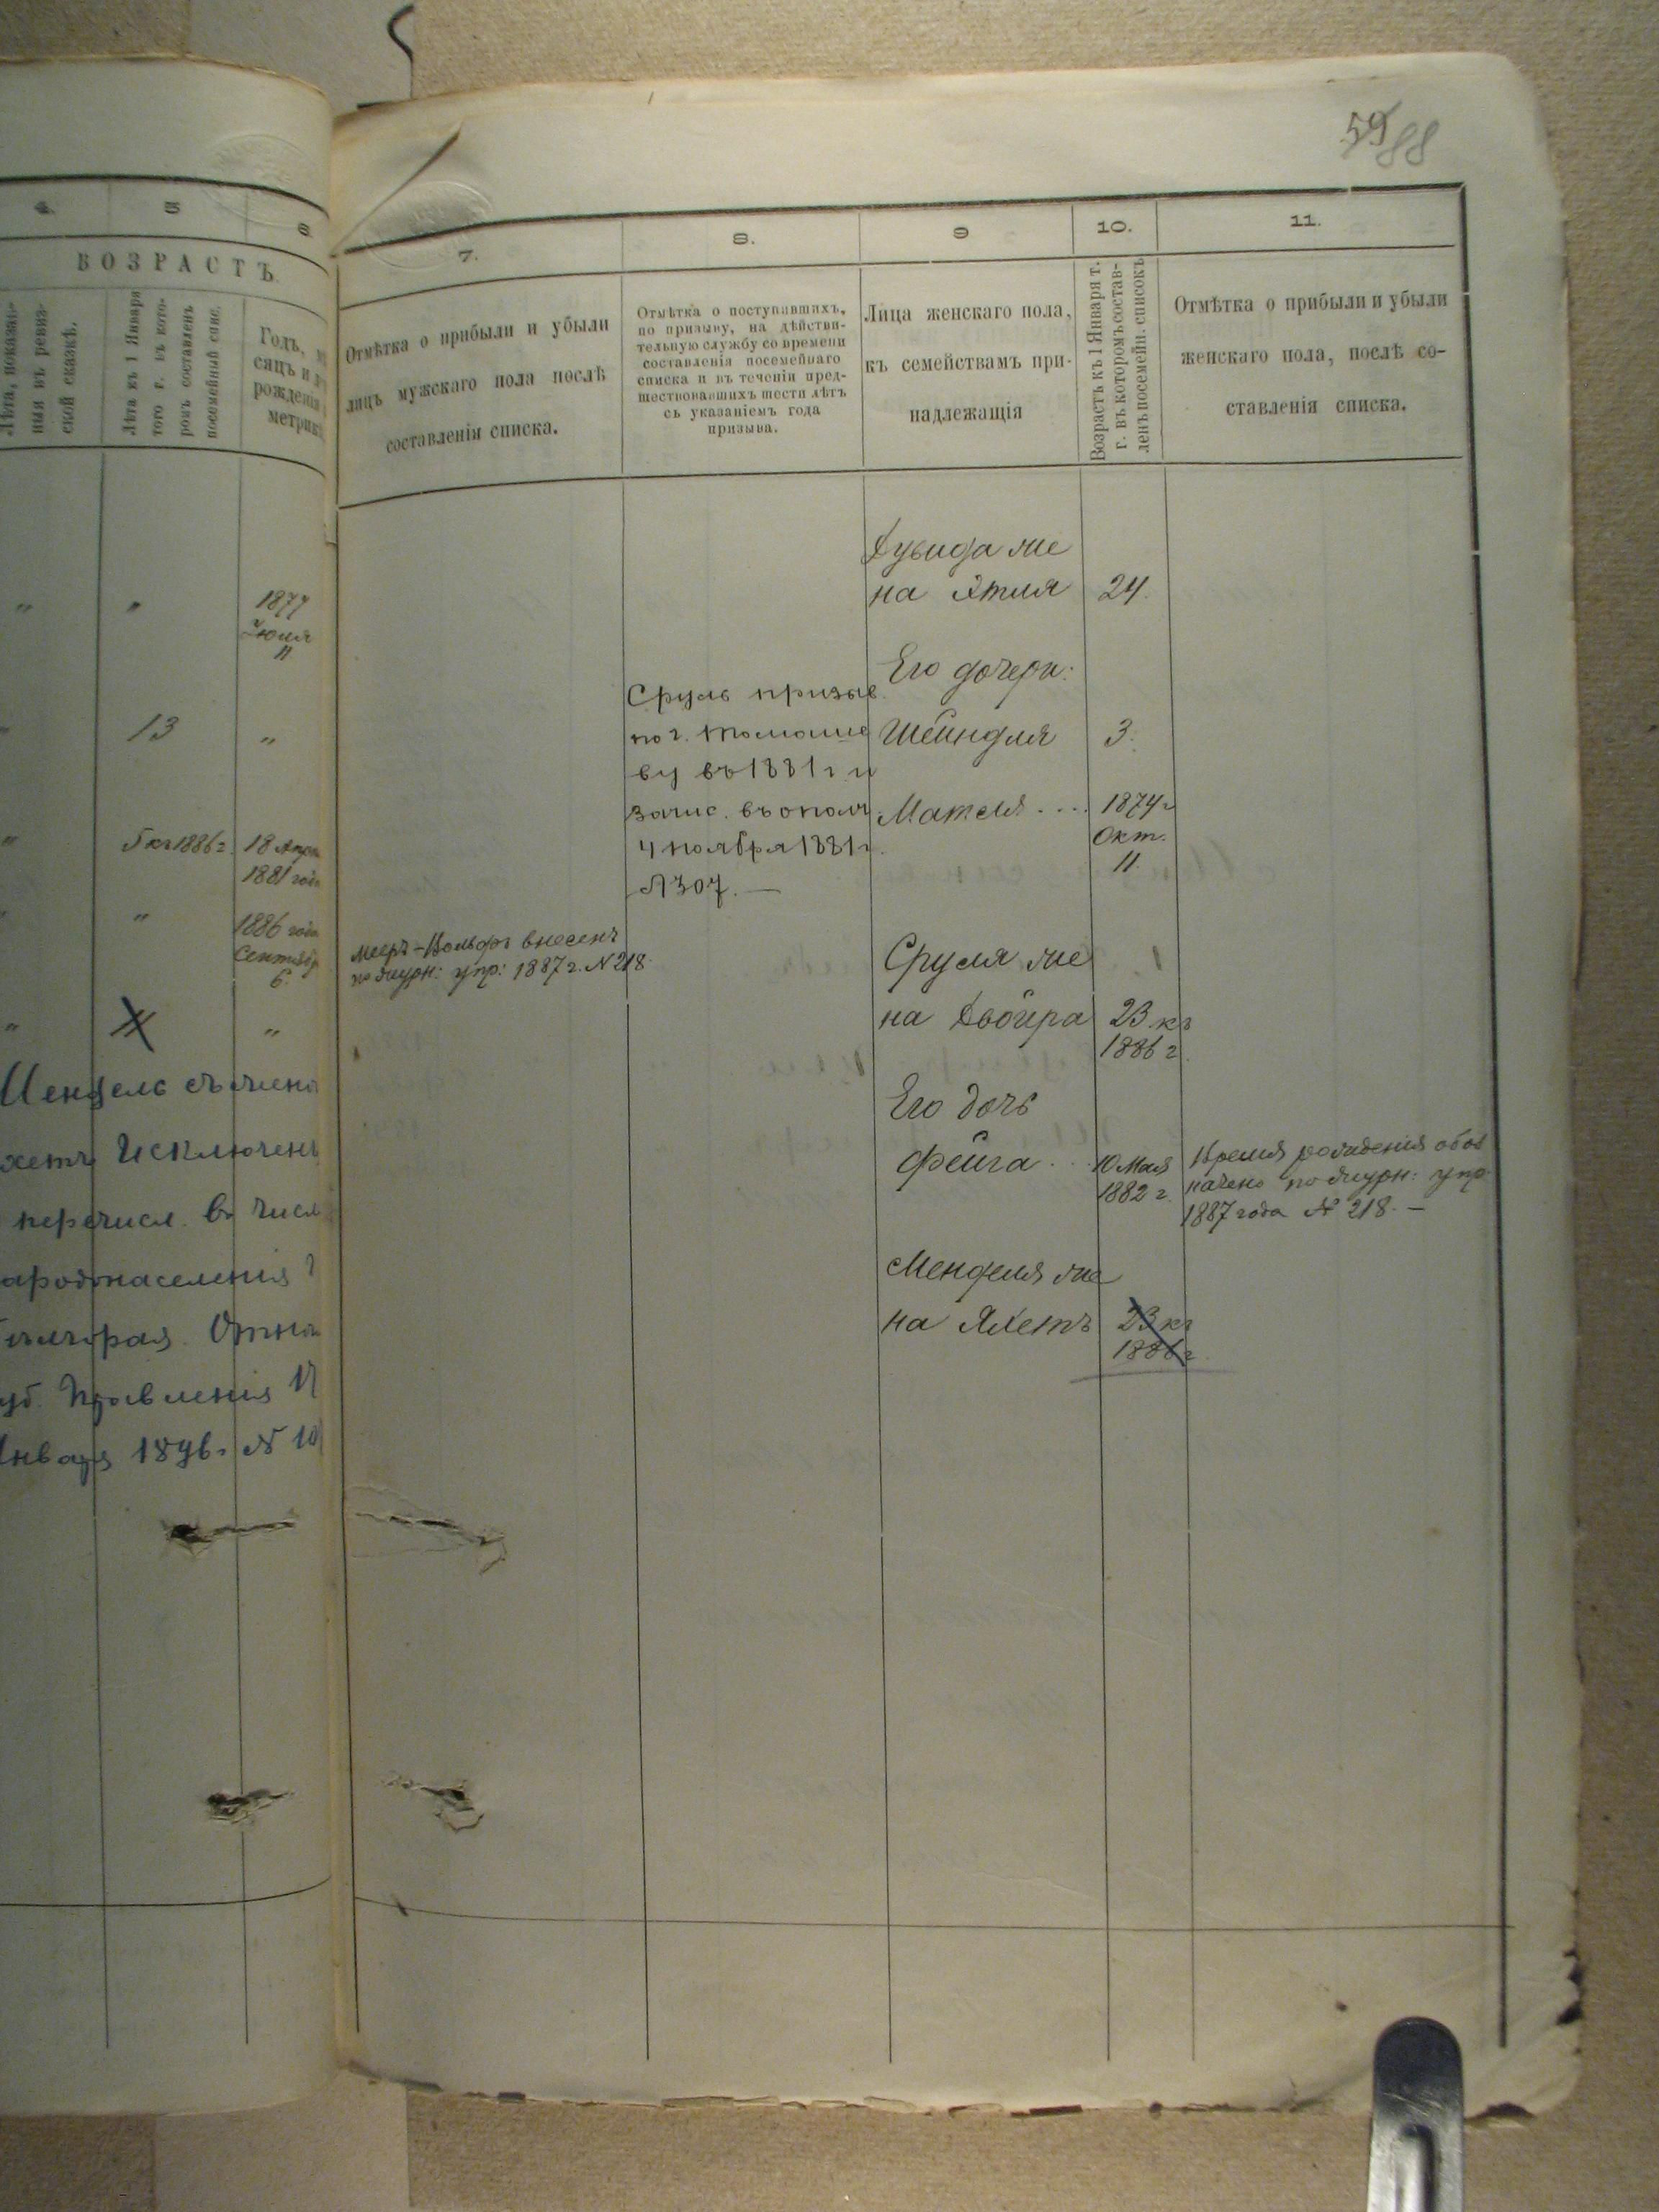 59 88
4. 5 6
ВОЗРАСТЪ.
Лѣта, показан-
ныя въ ревиз-
ской сказкѣ.
Лѣта къ 1 Января
того г. въ кото-
ромъ составленъ
посемейный спис.
Годъ,
сяцъ и
рожденія
метрик
7. 8. 9 10. 11.
Отмѣтка о прибыли и убыли
лицъ мужскаго пола послѣ
составленія списка.
Отмѣтка о поступавшихъ,
по призыву, на дѣйстви-
тельную службу со времени
составленія посемейнаго
списка и въ теченіи пред-
шествовавшихъ шести лѣтъ
съ указаніемъ года
призыва.
Лица женскаго пола,
къ семействамъ при-
надлежащія
Возрастъ къ 1 Января т.
г. въ которомъ состав-
ленъ посемейн. списокъ
Отмѣтка о прибыли и убыли
женскаго пола, послѣ со-
ставленія списка.
" " 1877
Іюля
11
13 "
5 къ 1886 г. 18 Апрѣ
1881 года
" 1886 года
Сентябр
6.
" "
Мендель съ жено
хетъ Исключенъ
перечисл. въ числ
ародонаселенія г
Отнош
уб. Правленія 17
Января 1896 г. № 10
Мееръ-Вольфъ внесенъ
по журн: упр: 1887 г. № 218.
Сруль призыв.
по г. Томаше
ву въ 1881 г и
зачис. въ ополч.
4 ноября 1881 г.
№ 307. —
Дувида же
на Этля 24.
Его дочери:
Шейндля 3.
Матля .... 1874 г
Окт.
11.
Сруля же
на Двойра 23 къ
1886 г.
Его дочь
Фейга ... 10 Мая
1882 г.
Время рожденія обоз
начено по журн: упр.
1887 года № 218. —
Менделя же
на Яхетъ 23 къ
1886 г.